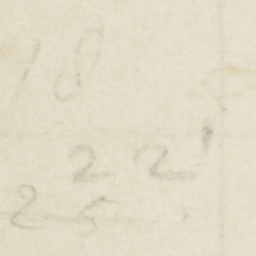 18
22
25